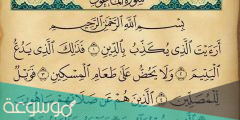 سورة الماعون
بِسْمِ اللَّهِ الرَّحْمَٰنِ الرَّحِيمِ
أَرَءَيْتَ الَّذِى يُكَذِّبُ بِالدِّينِ ۝١ فَذَٰلِكَ الَّذِى يَدُعُّ
الْيَتِيمَ ۝٢ وَلَا يَحُضُّ عَلَىٰ طَعَامِ الْمِسْكِينِ ۝٣ فَوَيْلٌ
لِّلْمُصَلِّينَ ۝٤ الَّذِينَ هُمْ عَن صَلَاتِهِمْ سَاهُونَ
موسوعة